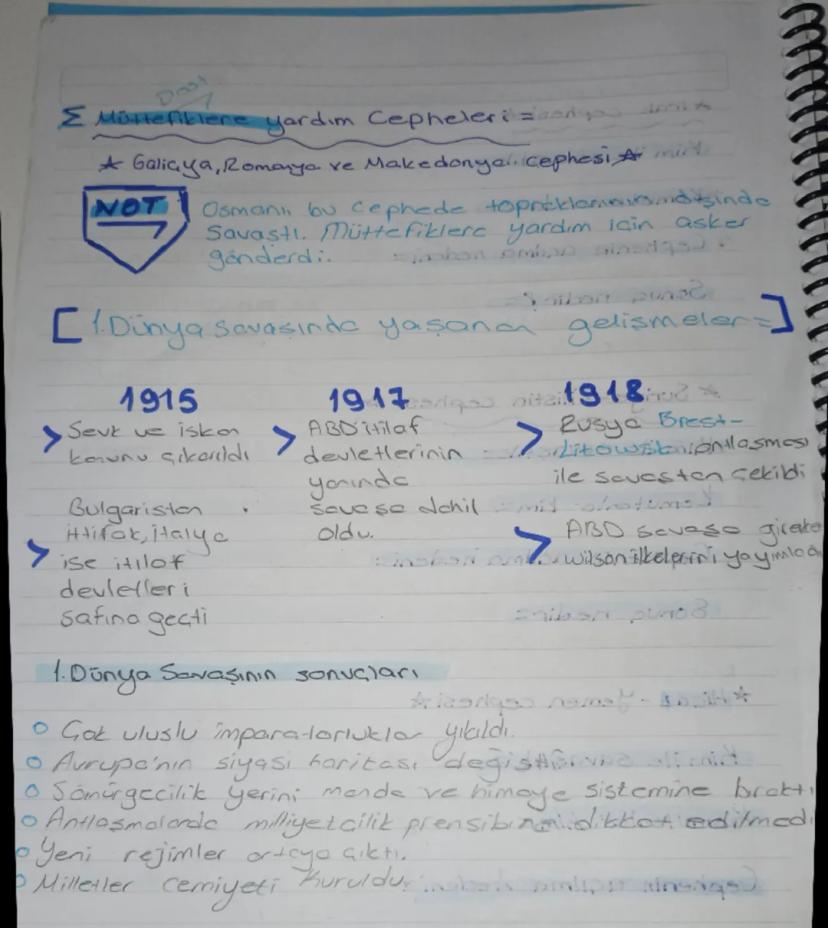 Dost
Σ Müttefiklere yardım Cepheleri =
★ Galiçya, Romanya ve Makedonya cephesi ★
NOT
Osmanlı bu cephede topraklarının dışında
Savaştı. Müttefiklere yardım için asker
gönderdi.
[ 1.Dünya savaşında yaşanan gelişmeler = ]
1915
> Sevk ve iskan
kanunu çıkarıldı
Bulgaristan
> ittifak, italya
ise itilaf
devletleri
safına geçti
1917
> ABD itilaf
devletlerinin
yanında
savaşa dahil
oldu.
1918
> Rusya Brest-
Litowsk antlaşması
ile savaştan çekildi
> ABD savaşa girerken
wilson ilkelerini yayımladı
1.Dünya Savaşının sonuçları
○ Çok uluslu imparatorluklar yıkıldı.
○ Avrupa'nın siyasi haritası değişti
○ Sömürgecilik yerini manda ve himaye sistemine bıraktı
○ Antlaşmalarda milliyetcilik prensibine dikkat edilmedi
○ Yeni rejimler ortaya çıktı.
○ Milletler cemiyeti kuruldu.